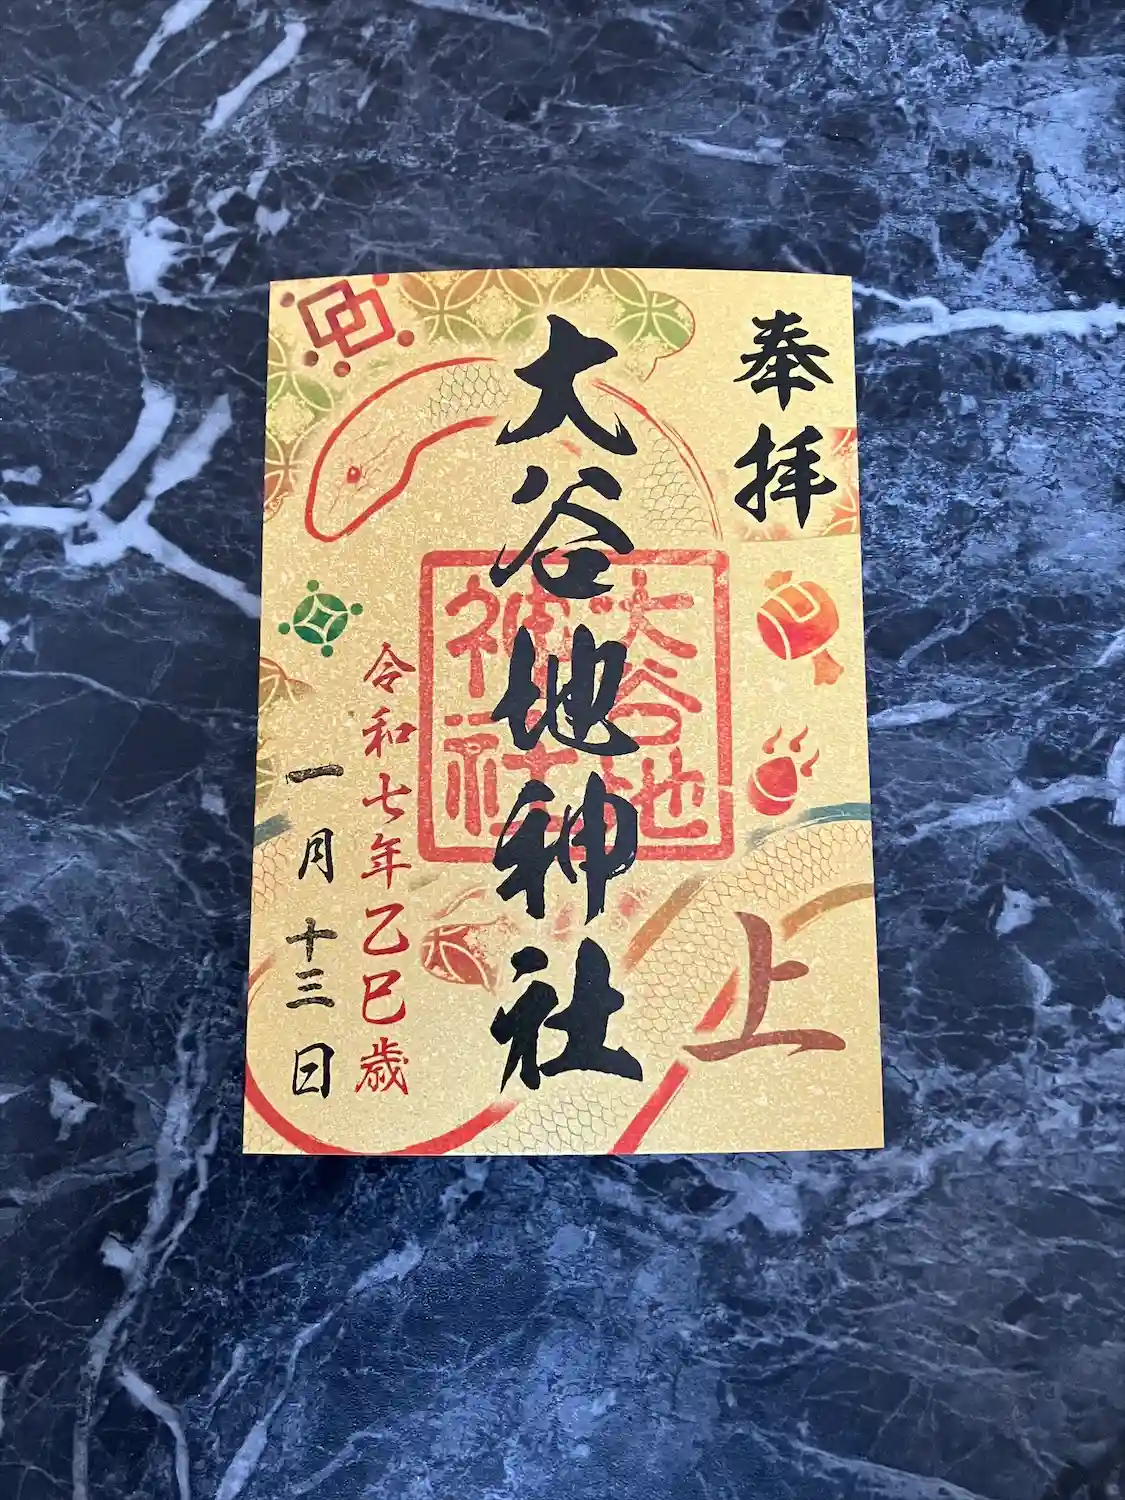 奉拝
上
大谷地神社
大谷地
神社
令和七年乙巳歳
一月十三日